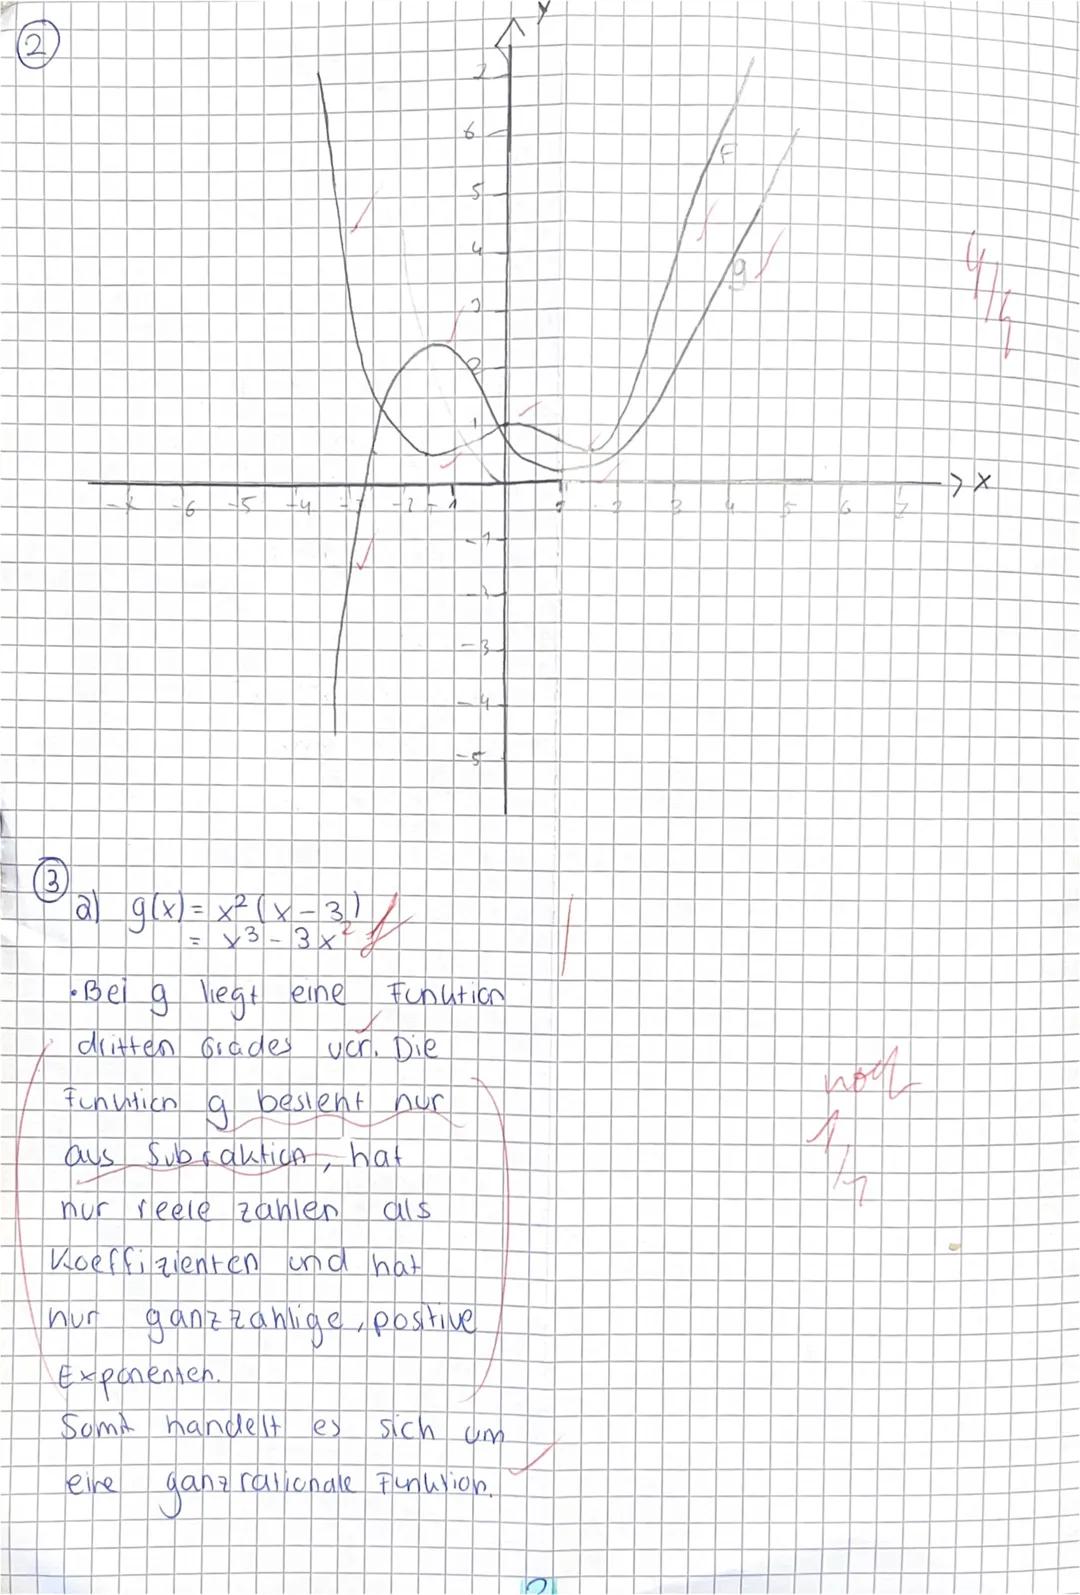 2
y
7
6
5
4
3
2
1
F
g
4/4
-6 -5 -4 -2 -1 1 2 3 4 5 6 7 x
-1
-2
-3
-4
-5
3
a) g(x) = x² (x - 3)
= x³ - 3x²
• Bei g liegt eine Funktion
dritten Grades vor. Die
Funktion g besteht nur
aus Subraktion, hat
noch
1/1
nur reele zahlen als
Koeffizienten und hat
nur ganzzahlige, positive
Exponenten.
Somit handelt es sich um
eine ganzrationale Funktion.
2